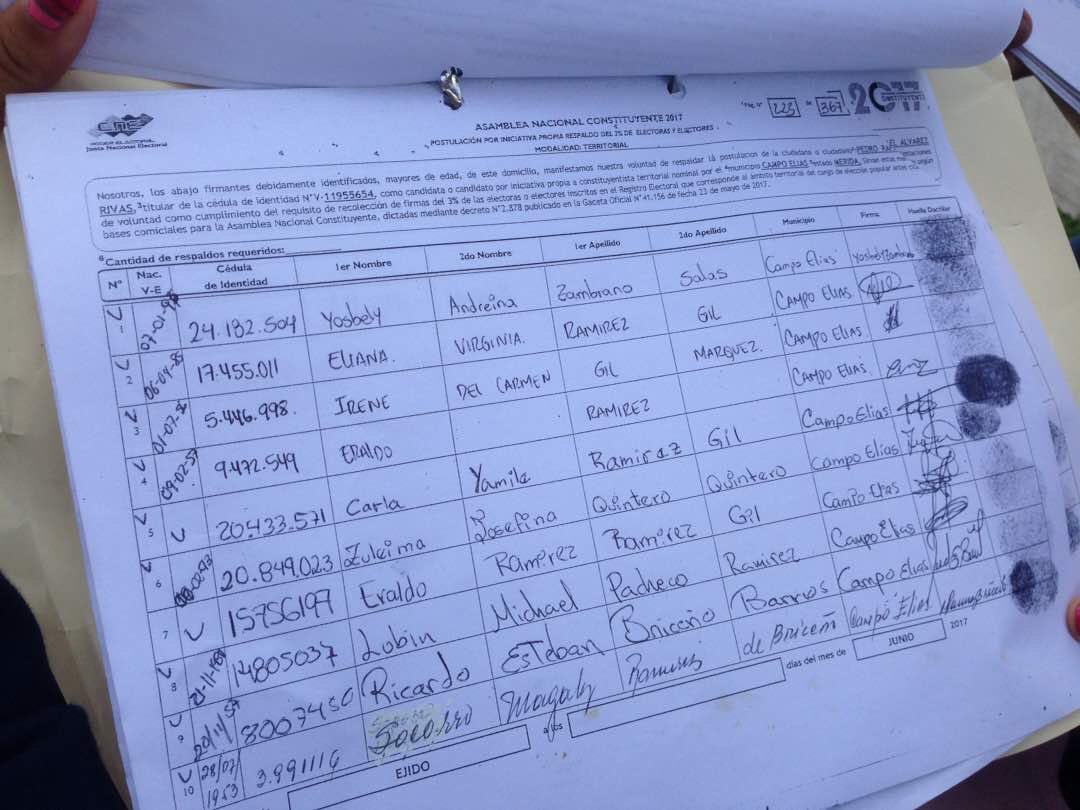 CNE
PODER ELECTORAL
Junta Nacional Electoral
ASAMBLEA NACIONAL CONSTITUYENTE 2017
POSTULACIÓN POR INICIATIVA PROPIA RESPALDO DEL 3% DE ELECTORAS Y ELECTORES
MODALIDAD: TERRITORIAL
223 de 367
2017
CONSTITUYENTE
Nosotros, los abajo firmantes debidamente identificados, mayores de edad, de este domicilio, manifestamos nuestra voluntad de respaldar la postulación de la ciudadana o ciudadano PEDRO ALVAREZ
RIVAS, titular de la cédula de identidad N°V-11955654, como candidata o candidato por iniciativa propia a constituyentista territorial nominal por el municipio CAMPO ELIAS estado MERIDA.
de voluntad como cumplimiento del requisito de recolección de firmas del 3% de las electoras o electores inscritos en el Registro Electoral que corresponde al ámbito territorial del cargo de elección popular
bases comiciales para la Asamblea Nacional Constituyente, dictadas mediante decreto N°2.878 publicado en la Gaceta Oficial N°41.156 de fecha 23 de mayo de 2017.
Cantidad de respaldos requeridos:
N° Nac. V-E Cédula de Identidad 1er Nombre 2do Nombre 1er Apellido 2do Apellido Municipio Firma Huella Dactilar
1 V 24.132.504 Yosbely Andreina Zambrano Salas Campo Elias
2 V 06-04-85 17.455.011 ELIANA. VIRGINIA. RAMIREZ GIL CAMPO ELIAS
3 V 5.446.998. IRENE DEL CARMEN GIL MARQUEZ. CAMPO ELIAS
4 V 9.472.549 ERALDO RAMIREZ CAMPO ELIAS.
5 V 20.433.571 Carla Yamile Ramirez Gil Campo Elias
6 V 20.849.023 Zuleima Josefina Quintero Quintero Campo Elias
7 V 15756197 Eraldo Ramirez Ramirez Gil Campo Elias
8 V 14805037 Lobin Michael Pacheco Ramirez Campo Elias
9 V 8007450 Ricardo Esteban Briceño Barros Campo Elias
10 V 28/07/1953 3.991116 Socorro Magaly Ramirez de Briceñ Campo Elias
EJIDO a los días del mes de JUNIO 2017